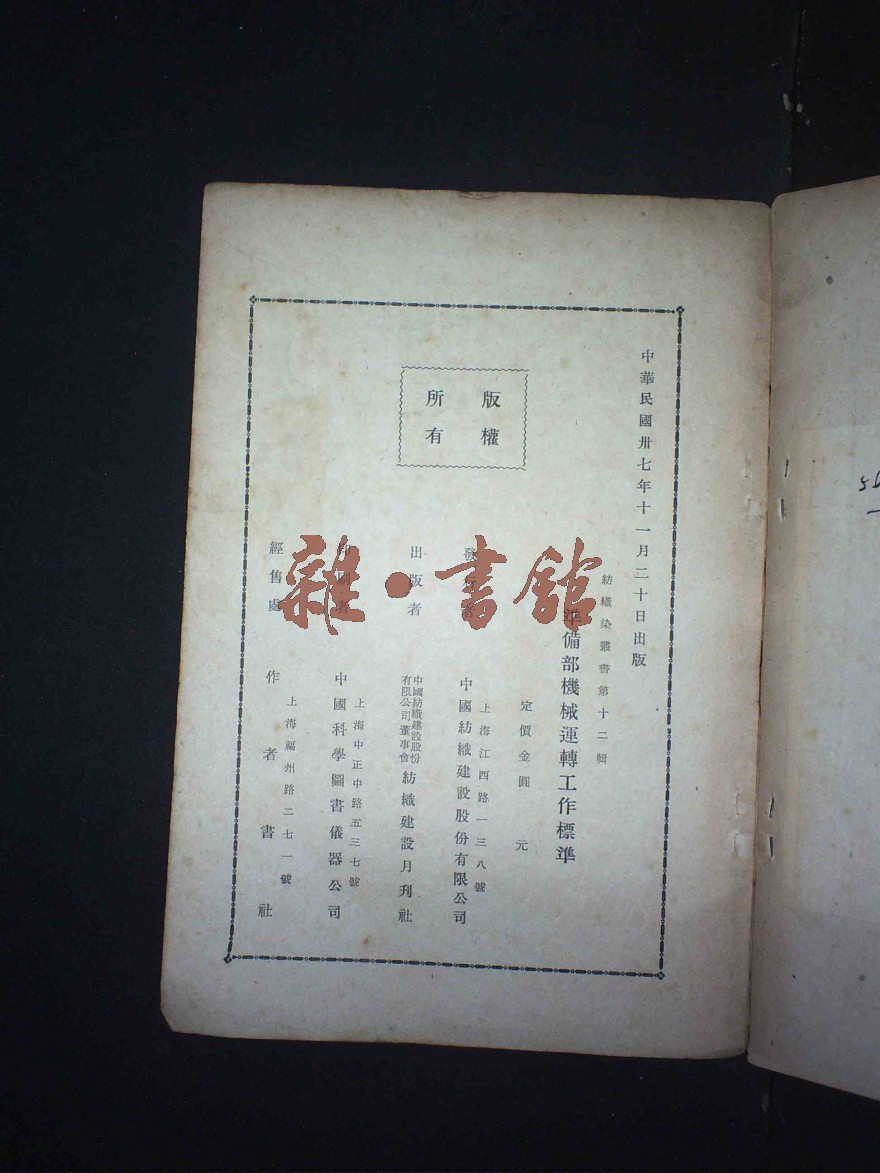 中華民國卅七年十一月二十日出版
紡織染叢書第十二輯
準備部機械運轉工作標準
定價金圓 元
版權
所有
發行者 中國紡織建設股份有限公司
上海江西路一三八號
出版者 中國紡織建設股份有限公司董事會 紡織建設月刊社
印刷者 中國科學圖書儀器公司
上海中正中路五三七號
經售處 作者書社
上海福州路二七一號
雜·書館